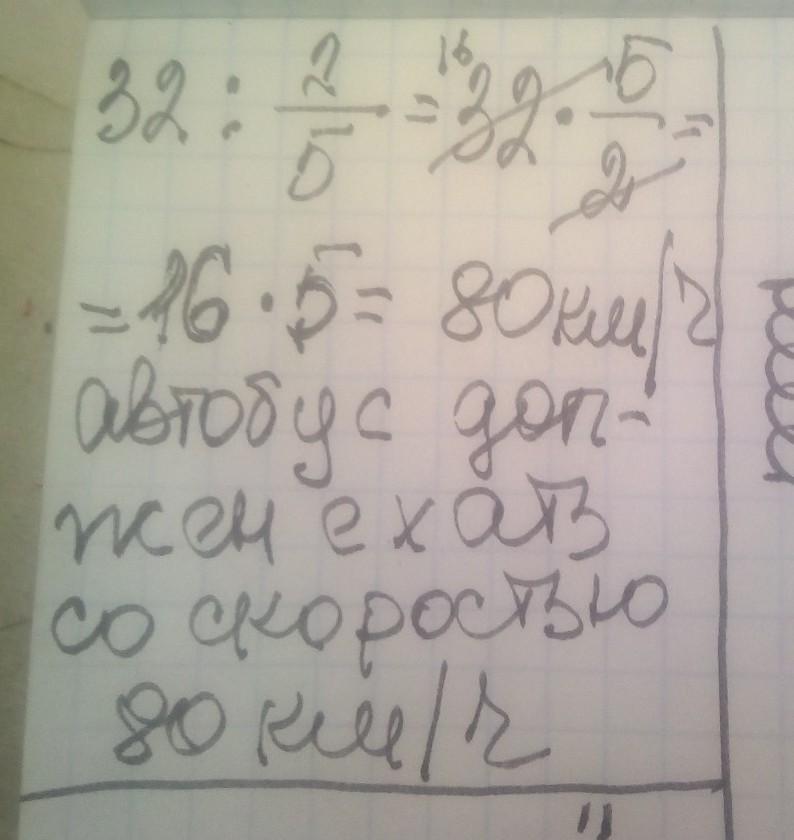 32 : 2/5 = 16 32 · 5/2 =
= 16 · 5 = 80 км/ч
автобус дол-
жен ехать
со скоростью
80 км/ч